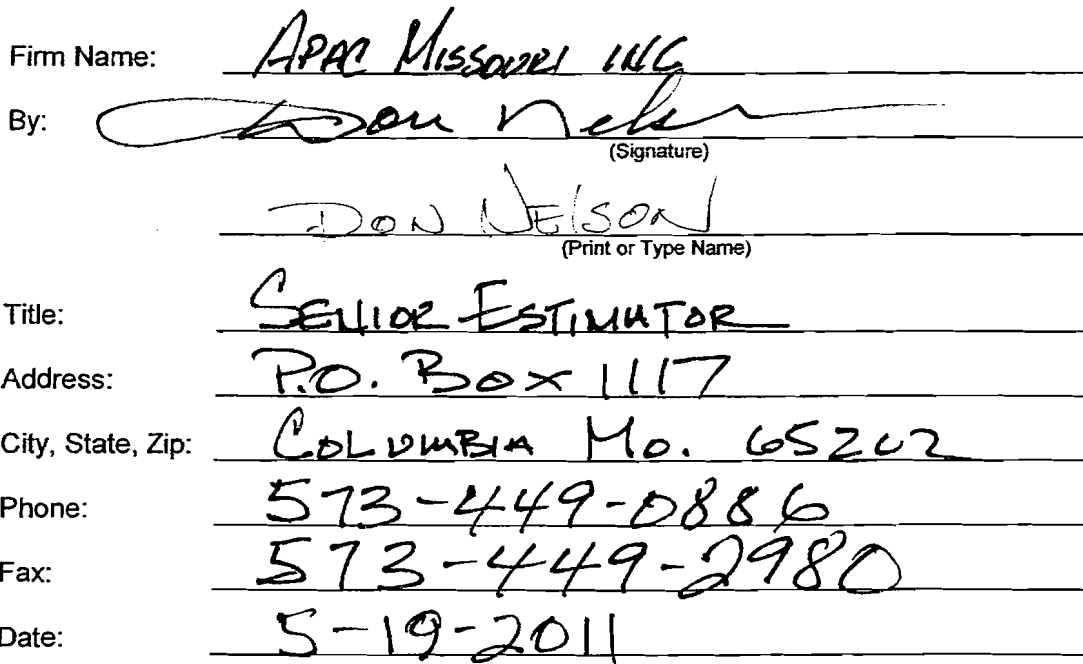 Firm Name: APAC MISSOURI INC
By: Don Nelson
(Signature)
DON NELSON
(Print or Type Name)
Title: SENIOR ESTIMATOR
Address: P.O. Box 1117
City, State, Zip: COLUMBIA Mo. 65202
Phone: 573-449-0886
Fax: 573-449-2980
Date: 5-19-2011